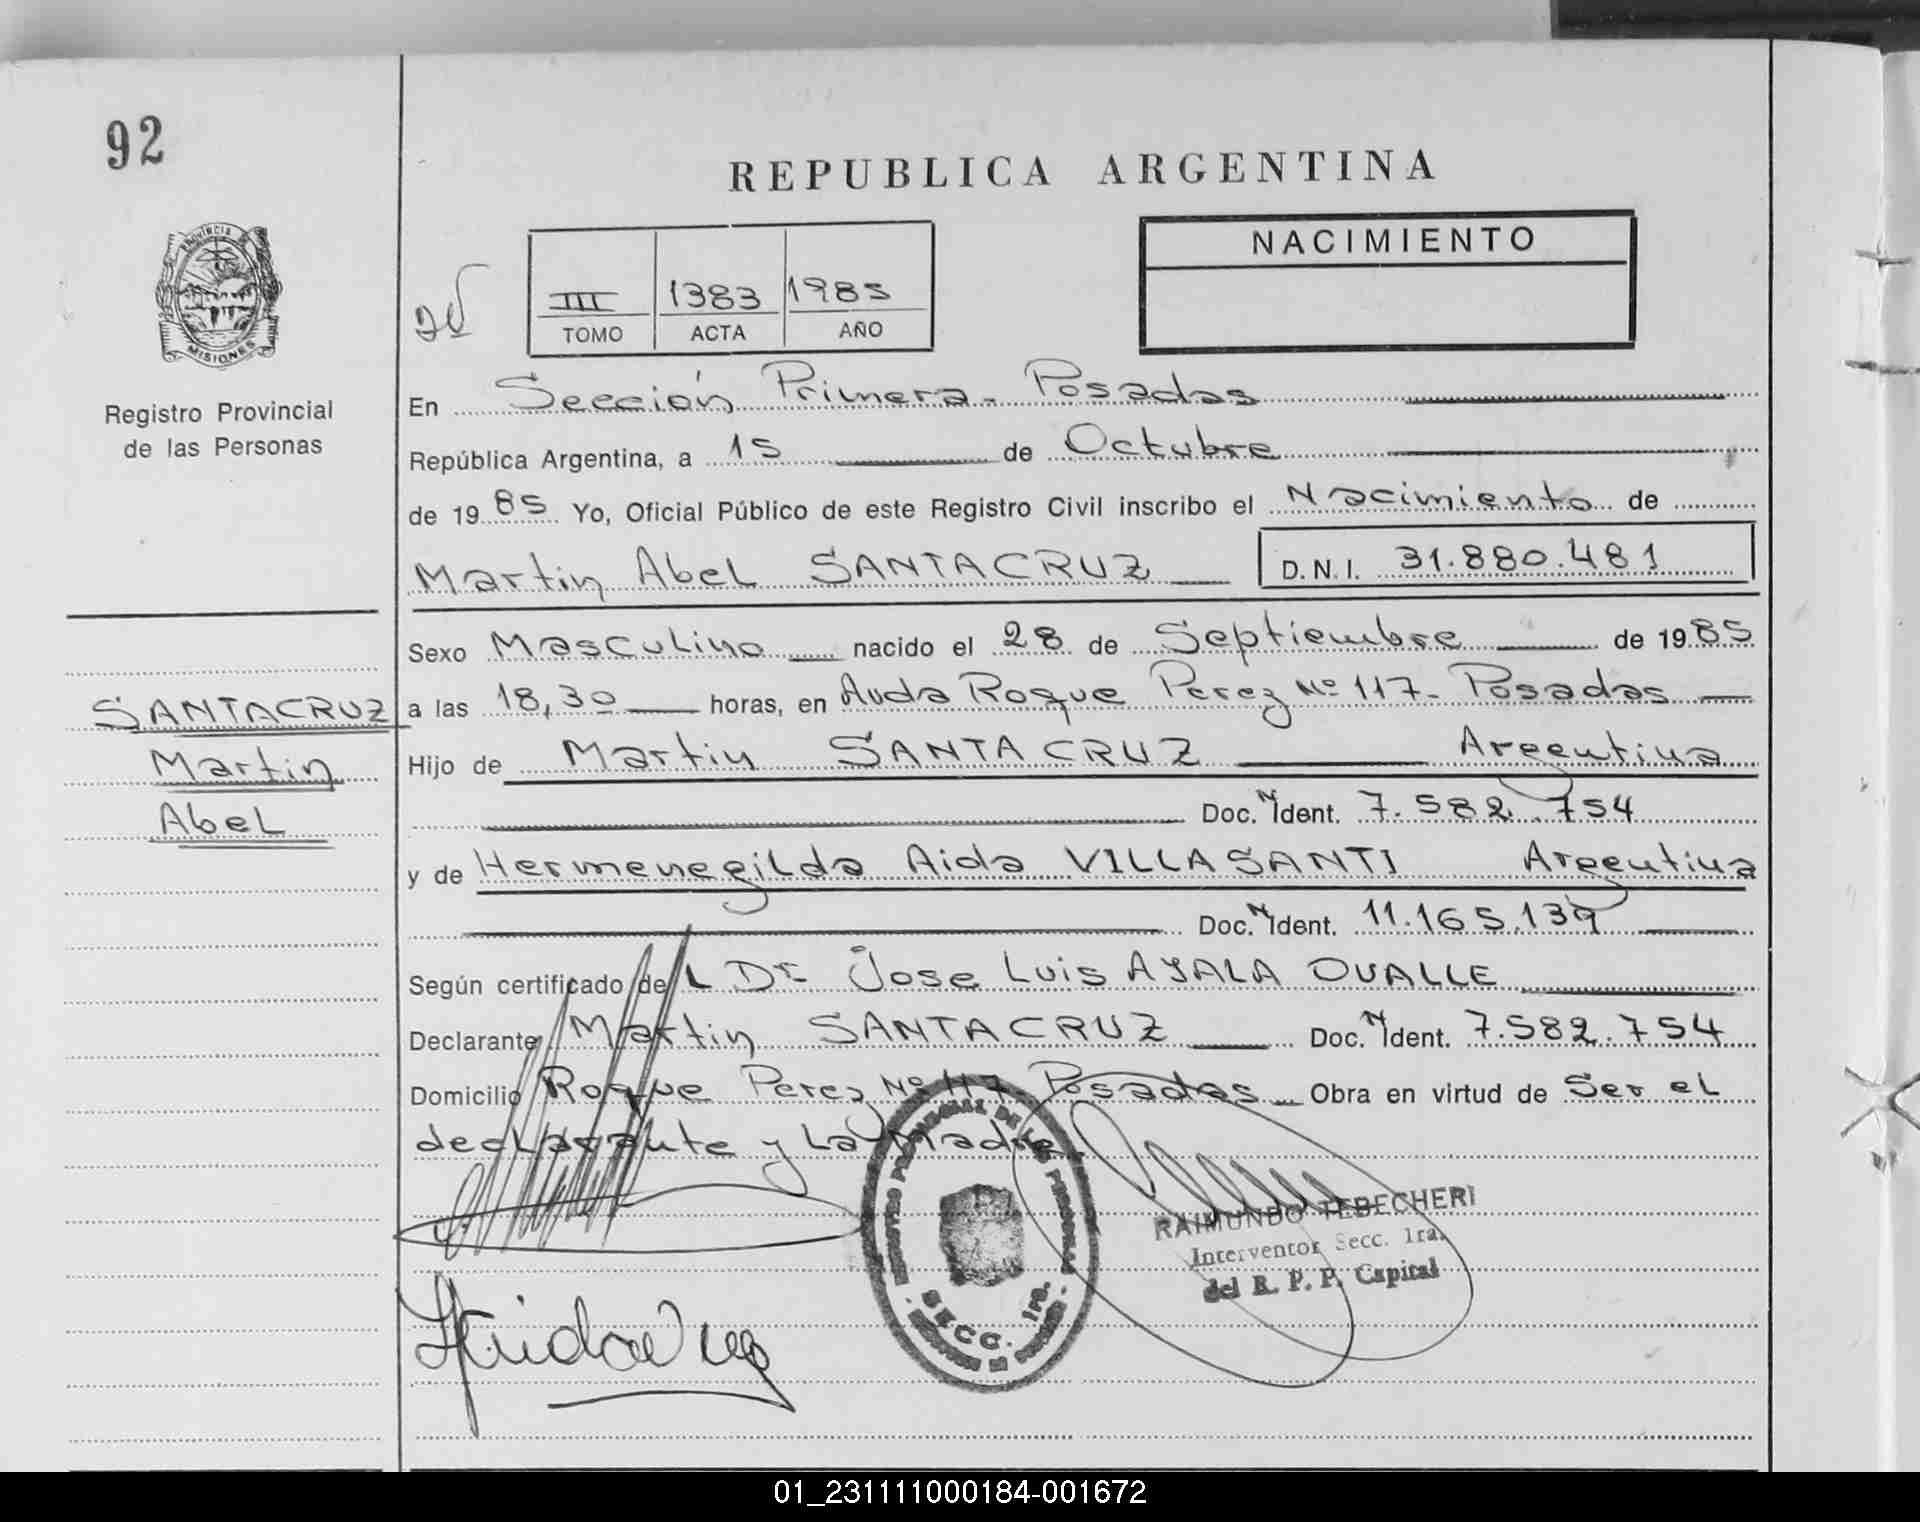 92
REPUBLICA ARGENTINA
PROVINCIA DE
MISIONES
Registro Provincial
de las Personas
III 1383 1985
TOMO ACTA AÑO
NACIMIENTO
En Sección Primera - Posadas
República Argentina, a 15 de Octubre
de 1985 Yo, Oficial Público de este Registro Civil inscribo el Nacimiento de
Martin Abel SANTACRUZ D.N.I. 31.880.481
Sexo Masculino nacido el 28 de Septiembre de 1985
SANTACRUZ
Martin
Abel
a las 18,30 horas, en Avda Roque Perez Nº 117- Posadas
Hijo de Martin SANTA CRUZ Argentina
Doc. N Ident. 7.582.754
y de Hermenegilda Aida VILLASANTI Argentina
Doc. N Ident. 11.165.139
Según certificado de L Dr Jose Luis AYALA OVALLE
Declarante Martin SANTACRUZ Doc. N Ident. 7.582.754
Domicilio Roque Perez Nº 117 Posadas Obra en virtud de Ser el
declarante y La Madre.
SECC. 1ra.
RAIMUNDO TEBECHERI
Interventor Secc. 1ra.
del R. P. P. Capital
01_231111000184-001672